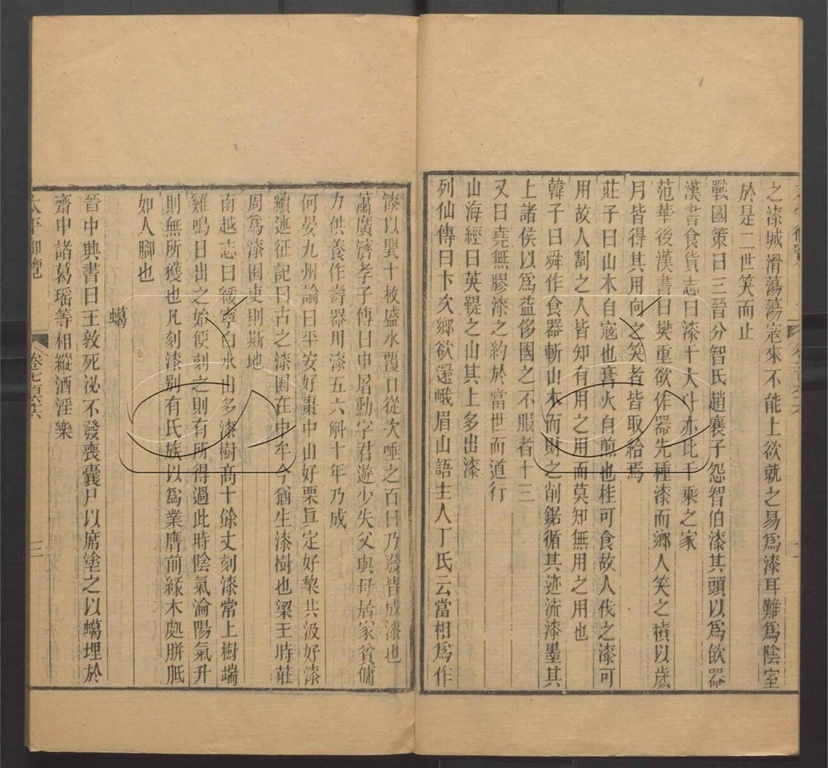 之漆城滑蕩蕩寇來不能上欲就之易爲漆耳難爲陰室
於是二世笑而止
戰國策曰三晉分智氏趙襄子怨智伯漆其頭以爲飲器
漢書食貨志曰漆千大斗亦比千乘之家
范華後漢書曰樊重欲作器先種漆而鄉人笑之積以歲
月皆得其用向之笑者皆取給焉
莊子曰山木自寇也膏火自煎也桂可食故人伐之漆可
用故人割之人皆知有用之用而莫知無用之用也
韓子曰舜作食器斬山木而財之削鋸循其迹流漆墨其
上諸侯以爲益侈國之不服者十三
又曰堯無膠漆之約於當世而道行
山海經曰英鞮之山其上多出漆
列仙傳曰卞次鄉欲還峨眉山語主人丁氏云當相爲作
漆以甖十枚盛水覆口從次唾之百日乃發皆成漆也
蕭廣濟孝子傳曰申屠勳字君遊少失父與母居家貧傭
力供養作壽器用漆五六斛十年乃成
何晏九州論曰平安好棗中山好栗眞定好棃共汲好漆
續述征記曰古之漆園在中牟今猶生漆樹也梁王時莊
周爲漆園吏則斯地
南越志曰綏寧白水山多漆樹高十餘丈刻漆常上樹端
雞鳴日出之始便刻之則有所得過此時陰氣淪陽氣升
則無所獲也凡刻漆别有氏族以爲業膺前緣木處胼胝
如人脚也
蠟
晉中興書曰王敦死祕不發喪裹尸以席塗之以蠟埋於
齋中諸葛瑶等相縱酒淫樂
太平御覽
卷七百六十六
三